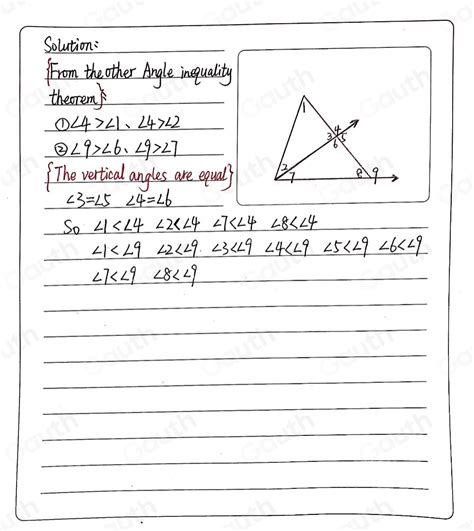 Solution:
{From the other Angle inequality
theorem}
①∠4>∠1、∠4>∠2
②∠9>∠6、∠9>∠7
{The vertical angles are equal}
∠3=∠5 ∠4=∠6
So ∠1<∠4 ∠2<∠4 ∠7<∠4 ∠8<∠4
∠1<∠9 ∠2<∠9 ∠3<∠9 ∠4<∠9 ∠5<∠9 ∠6<∠9
∠7<∠9 ∠8<∠9
1
4
3 5
6
2
7
8 9
Gauth